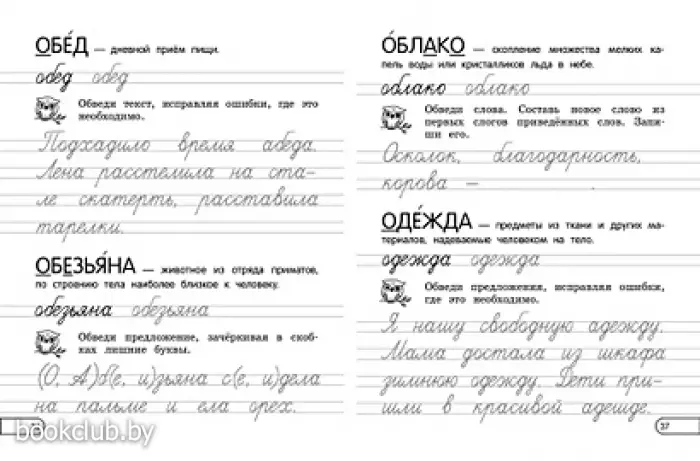 ОБЕ́Д — дневной приём пищи.
обед обед
Обведи текст, исправляя ошибки, где это
необходимо.
Подхадило время абеда.
Лена расстелила на ста-
ле скатерть, расставила
тарелки.
ОБЕЗЬЯ́НА — животное из отряда приматов,
по строению тела наиболее близкое к человеку.
обезьяна обезьяна
Обведи предложение, зачёркивая в скоб-
ках лишние буквы.
(О, А)б(е, и)зьяна с(е, и)дела
на пальме и ела орех.
О́БЛАКО — скопление множества мелких ка-
пель воды или кристалликов льда в небе.
облако облако
Обведи слова. Составь новое слово из
первых слогов приведённых слов. Запи-
ши его.
Осколок, благодарность,
корова — .
ОДЕ́ЖДА — предметы из ткани и других ма-
териалов, надеваемые человеком на тело.
одежда одежда
Обведи предложения, исправляя ошибки,
где это необходимо.
Я нашу свободную адежду.
Мама достала из шкафа
зимнюю одежду. Дети при-
шли в красивой адешде.
37
bookclub.by